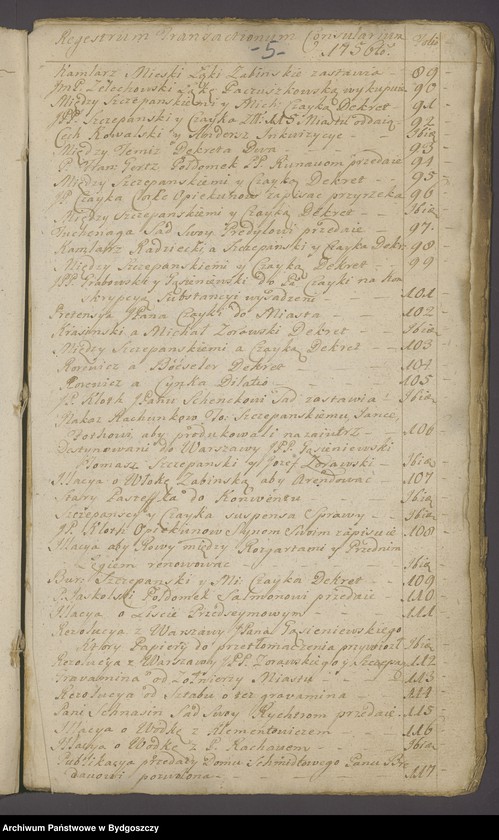 Regestrum Transactionum Consularium Folio
-5- 1756to.
Kamlarz Mieski Łąki Zabinskie zastawia - 89
JmP. Zelechowski Łąkę Paczuszkowską wykupuie 90
Między Szczepanskiemi y Mich: Czayką Dekret - 91
JPP. Szczepanski y Czayka Miastu oddaią - 92
Cech Kowalski y Anderss Inkwizycye - Ibid
Między Temiż Dekreta Dwa - 93
P. Fran: Gertz Połdomek PP. Kunauom przedaie 94
Między Szczepanskiemi y Czayką Dekret - 95
JP. Czayka Opiekunow zapisac przyrzeka 96
Między Szczepanskiemi y Czayką Dekret - Ibid
Sad Swoy Predylowi przedaie - 97
Kamlarz Radziecki a Szczepanski y Czayka Dekr: 98
Między Szczepanskiemi y Czayką Dekret - 99
JPP. Grabowski y Gąsieniewski do P. Czayki na Kon
skrypcyą Substancyi wysadzeni - 101
Pretensya JPana Czayki do Miasta - 102
Krasinski a Michał Zorawski Dekret - Ibid
Między Szczepanskiemi a Czayką Dekret - 103
Korewicz a Dekret - 104
Korewicz a Cynka Dilatio - 105
JP. Kloth JPanu Schenckowi Sad zostawia - Ibid
Nakaz Rachunkow Szczepanskiemu, Janco,
Klothowi, aby produkowali nazaiutrz - 106
Destynowani do Warszawy JPP. Gąsieniewski
Tomasz Szczepanski y Jozef Zorawski - Ibid
Placya o Włokę Zabinską aby Arendowac - 107
Stary do Konwentu - Ibid
Szczepanscy y Czayka suspensa Sprawy - Ibid
JP. Kloth Opiekunow Synom Swoim zapisuie 108
Placya aby Rowy między Rozgartami y Przednim
Łęgiem renowowac - Ibid
Bur: Szczepanski y Mi: Czayka Dekret - 109
P. Jaskolski Połdomek Salmonowi przedaie - 110
Placya o Liscie Przedseymowym - 111
Rezolucya z Warszawy JPana Gąsieniewskiego
Ktory Papiery do przetłomaczenia przywiozł Ibid
Rezolucya z Warszawy JPP. Zorawskiego y Szczepan: 112
Gravamina od Zołnierzy Miastu - 113
Rezolucya od Sztabu o tez gravamina - 114
Pani Schnasin Sad Swoy Rychtrom przedaie - 115
Placya o Wodkę z Klementowiczem - 116
Placya o Wodkę z P. Rachauem - Ibid
Publikacya przedazy Domu Schmidtowego Panu Bre
dauowi pozwolona - 117
Archiwum Państwowe w Bydgoszczy